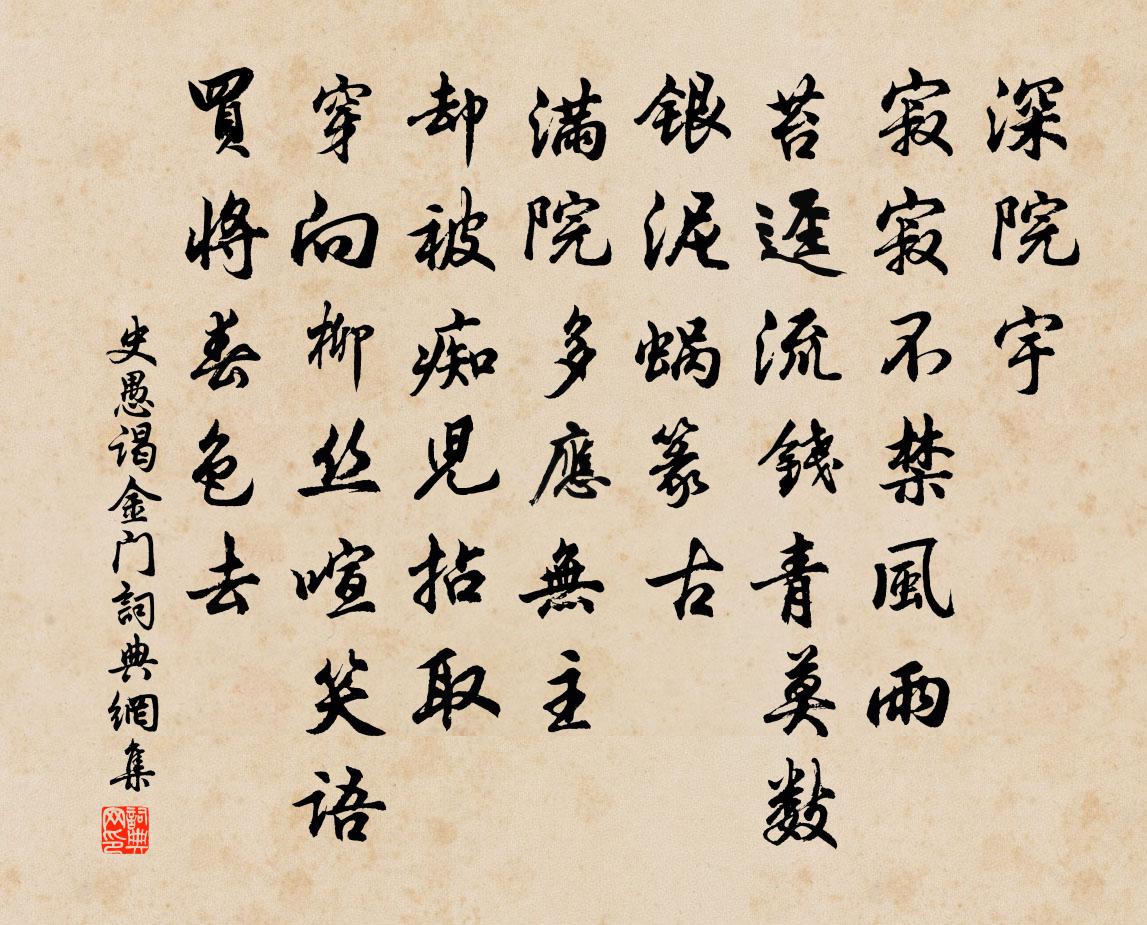 深院宇
寂寂不禁風雨
苔逕流錢青莫数
銀泥蝸篆古
滿院多應無主
却被痴兒拈取
穿向柳丝喧笑語
買將春色去
史愚谒金门詞典網集
詞典网印